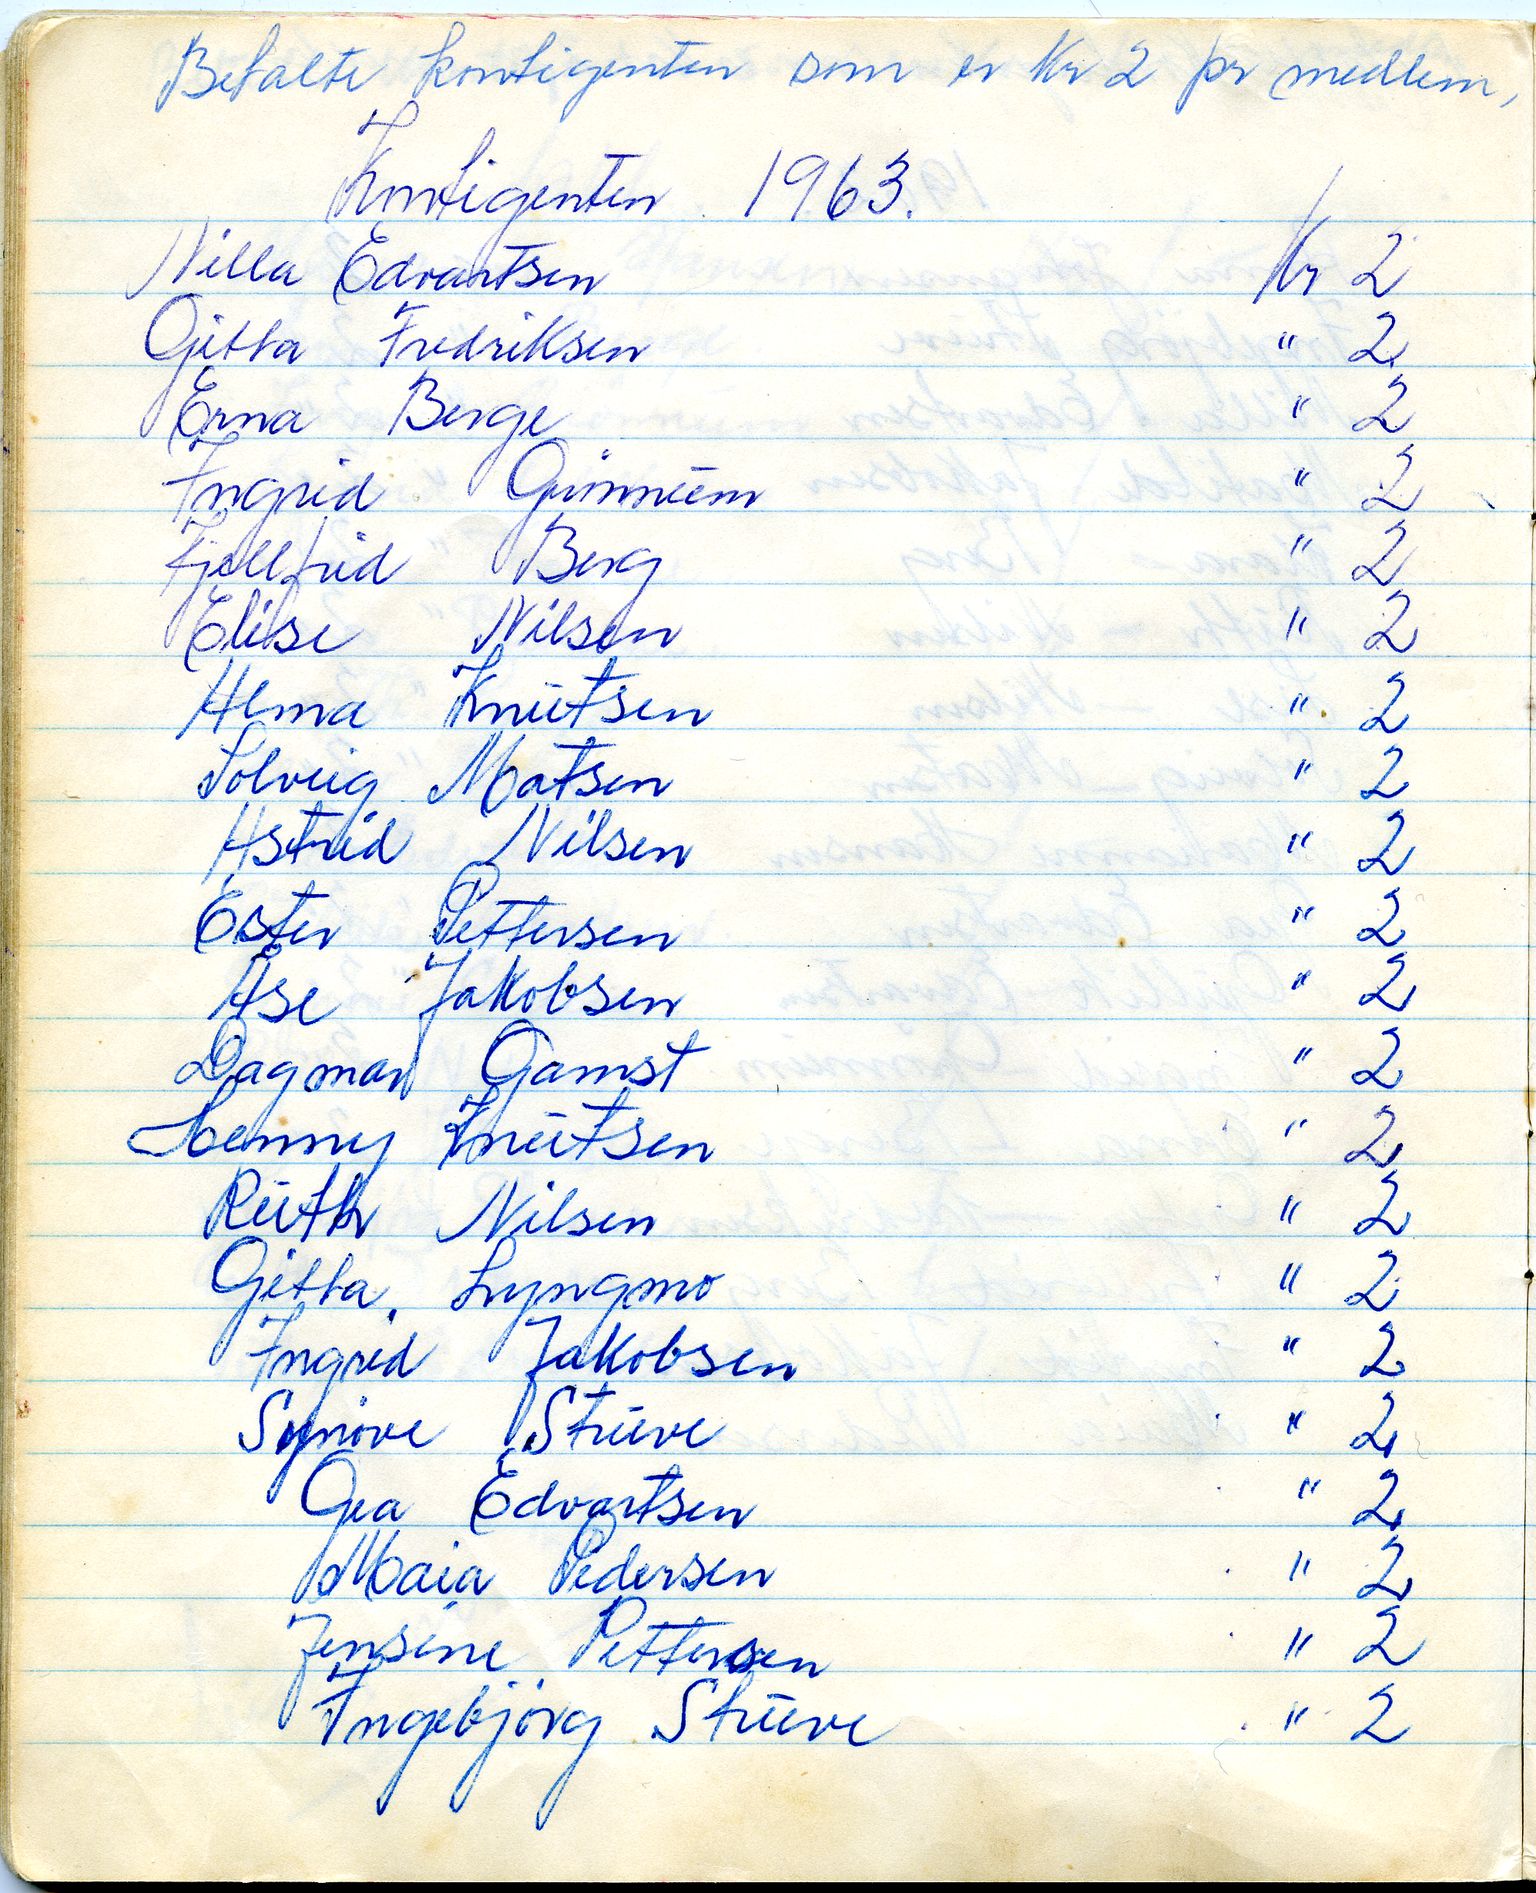 Betalte kontigenten som er Kr 2 pr medlem,
Kontigenten 1963.
Nilla Edvartsen Kr 2
Gitta Fredriksen " 2
Erna Berge " 2
Ingrid Grinnüem " 2
Kjellfrid Berg " 2
Elise Nilsen " 2
Alma Knütsen " 2
Solveig Matsen " 2
Astrid Nilsen " 2
Ester Pettersen " 2
Åse Jakobsen " 2
Dagmar Gamst " 2
Jenny Knütsen " 2
Rüth Nilsen " 2
Gitta Lyngmo " 2
Ingrid Jakobsen " 2
Synøve Strüve " 2
Gea Edvartsen " 2
Maia Pedersen " 2
Jensine Pettersen " 2
Ingebjørg Strüve " 2